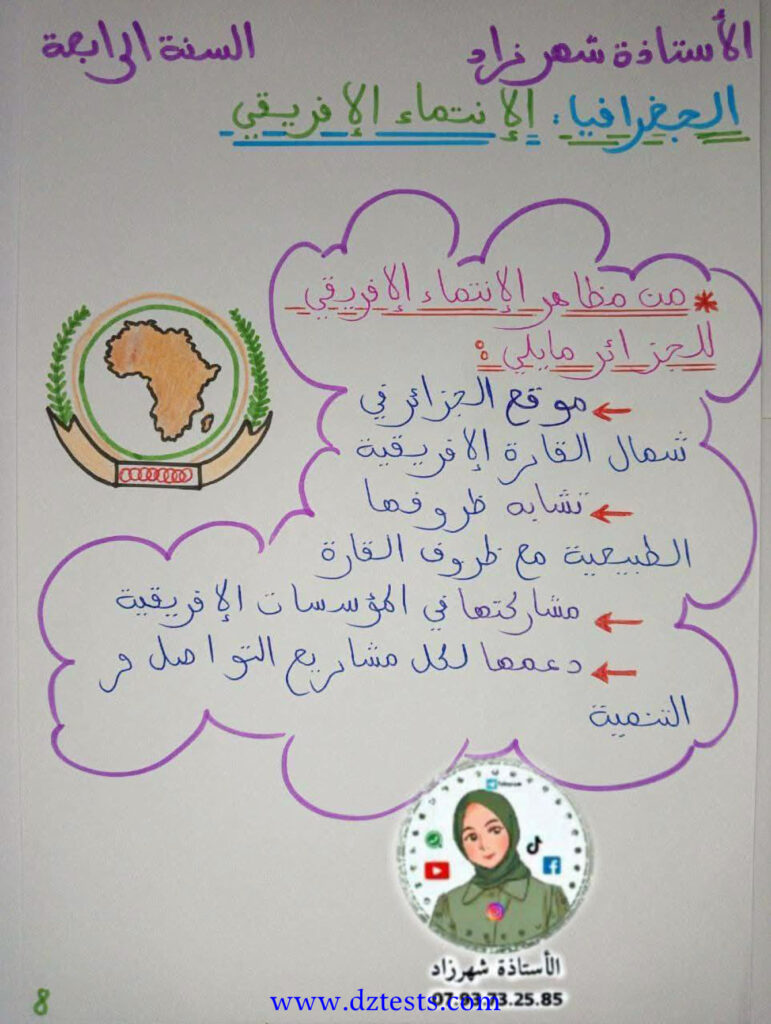 الأستاذة شهرزاد السنة الرابعة
الجغرافيا: الإنتماء الإفريقي
* من مظاهر الإنتماء الإفريقي
للجزائر مايلي:
← موقع الجزائر في
شمال القارة الإفريقية
← تشابه ظروفها
الطبيعية مع ظروف القارة
← مشاركتها في المؤسسات الإفريقية
← دعمها لكل مشاريع التواصل و
التنمية
الأستاذة شهرزاد
07.93.73.25.85
www.dztests.com
8